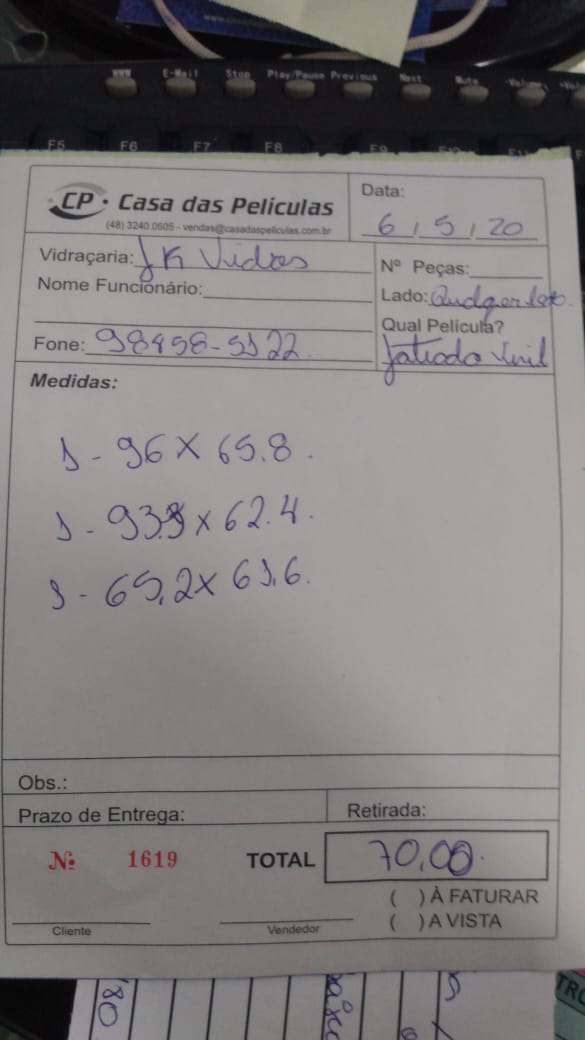 www.casad
WWW E-Mail Stop Play/Pause Previous Next Mute -Volume
F5 F6 F7 F8 F9
CP Casa das Películas
(48) 3240.0605 - vendas@casadaspeliculas.com.br
Data:
6 / 5 / 20
Vidraçaria: JK Vidros
Nº Peças:
Nome Funcionário:
Lado: Qualquer lado.
Qual Película?
Fone: 98458-5122
Jateado Vinil
Medidas:
1 - 96 X 65.8.
1 - 93.9 x 62.4.
1 - 65,2 x 61,6.
Obs.:
Prazo de Entrega:
Retirada:
Nº 1619
TOTAL 70,00.
( ) À FATURAR
( ) A VISTA
Cliente
Vendedor
180